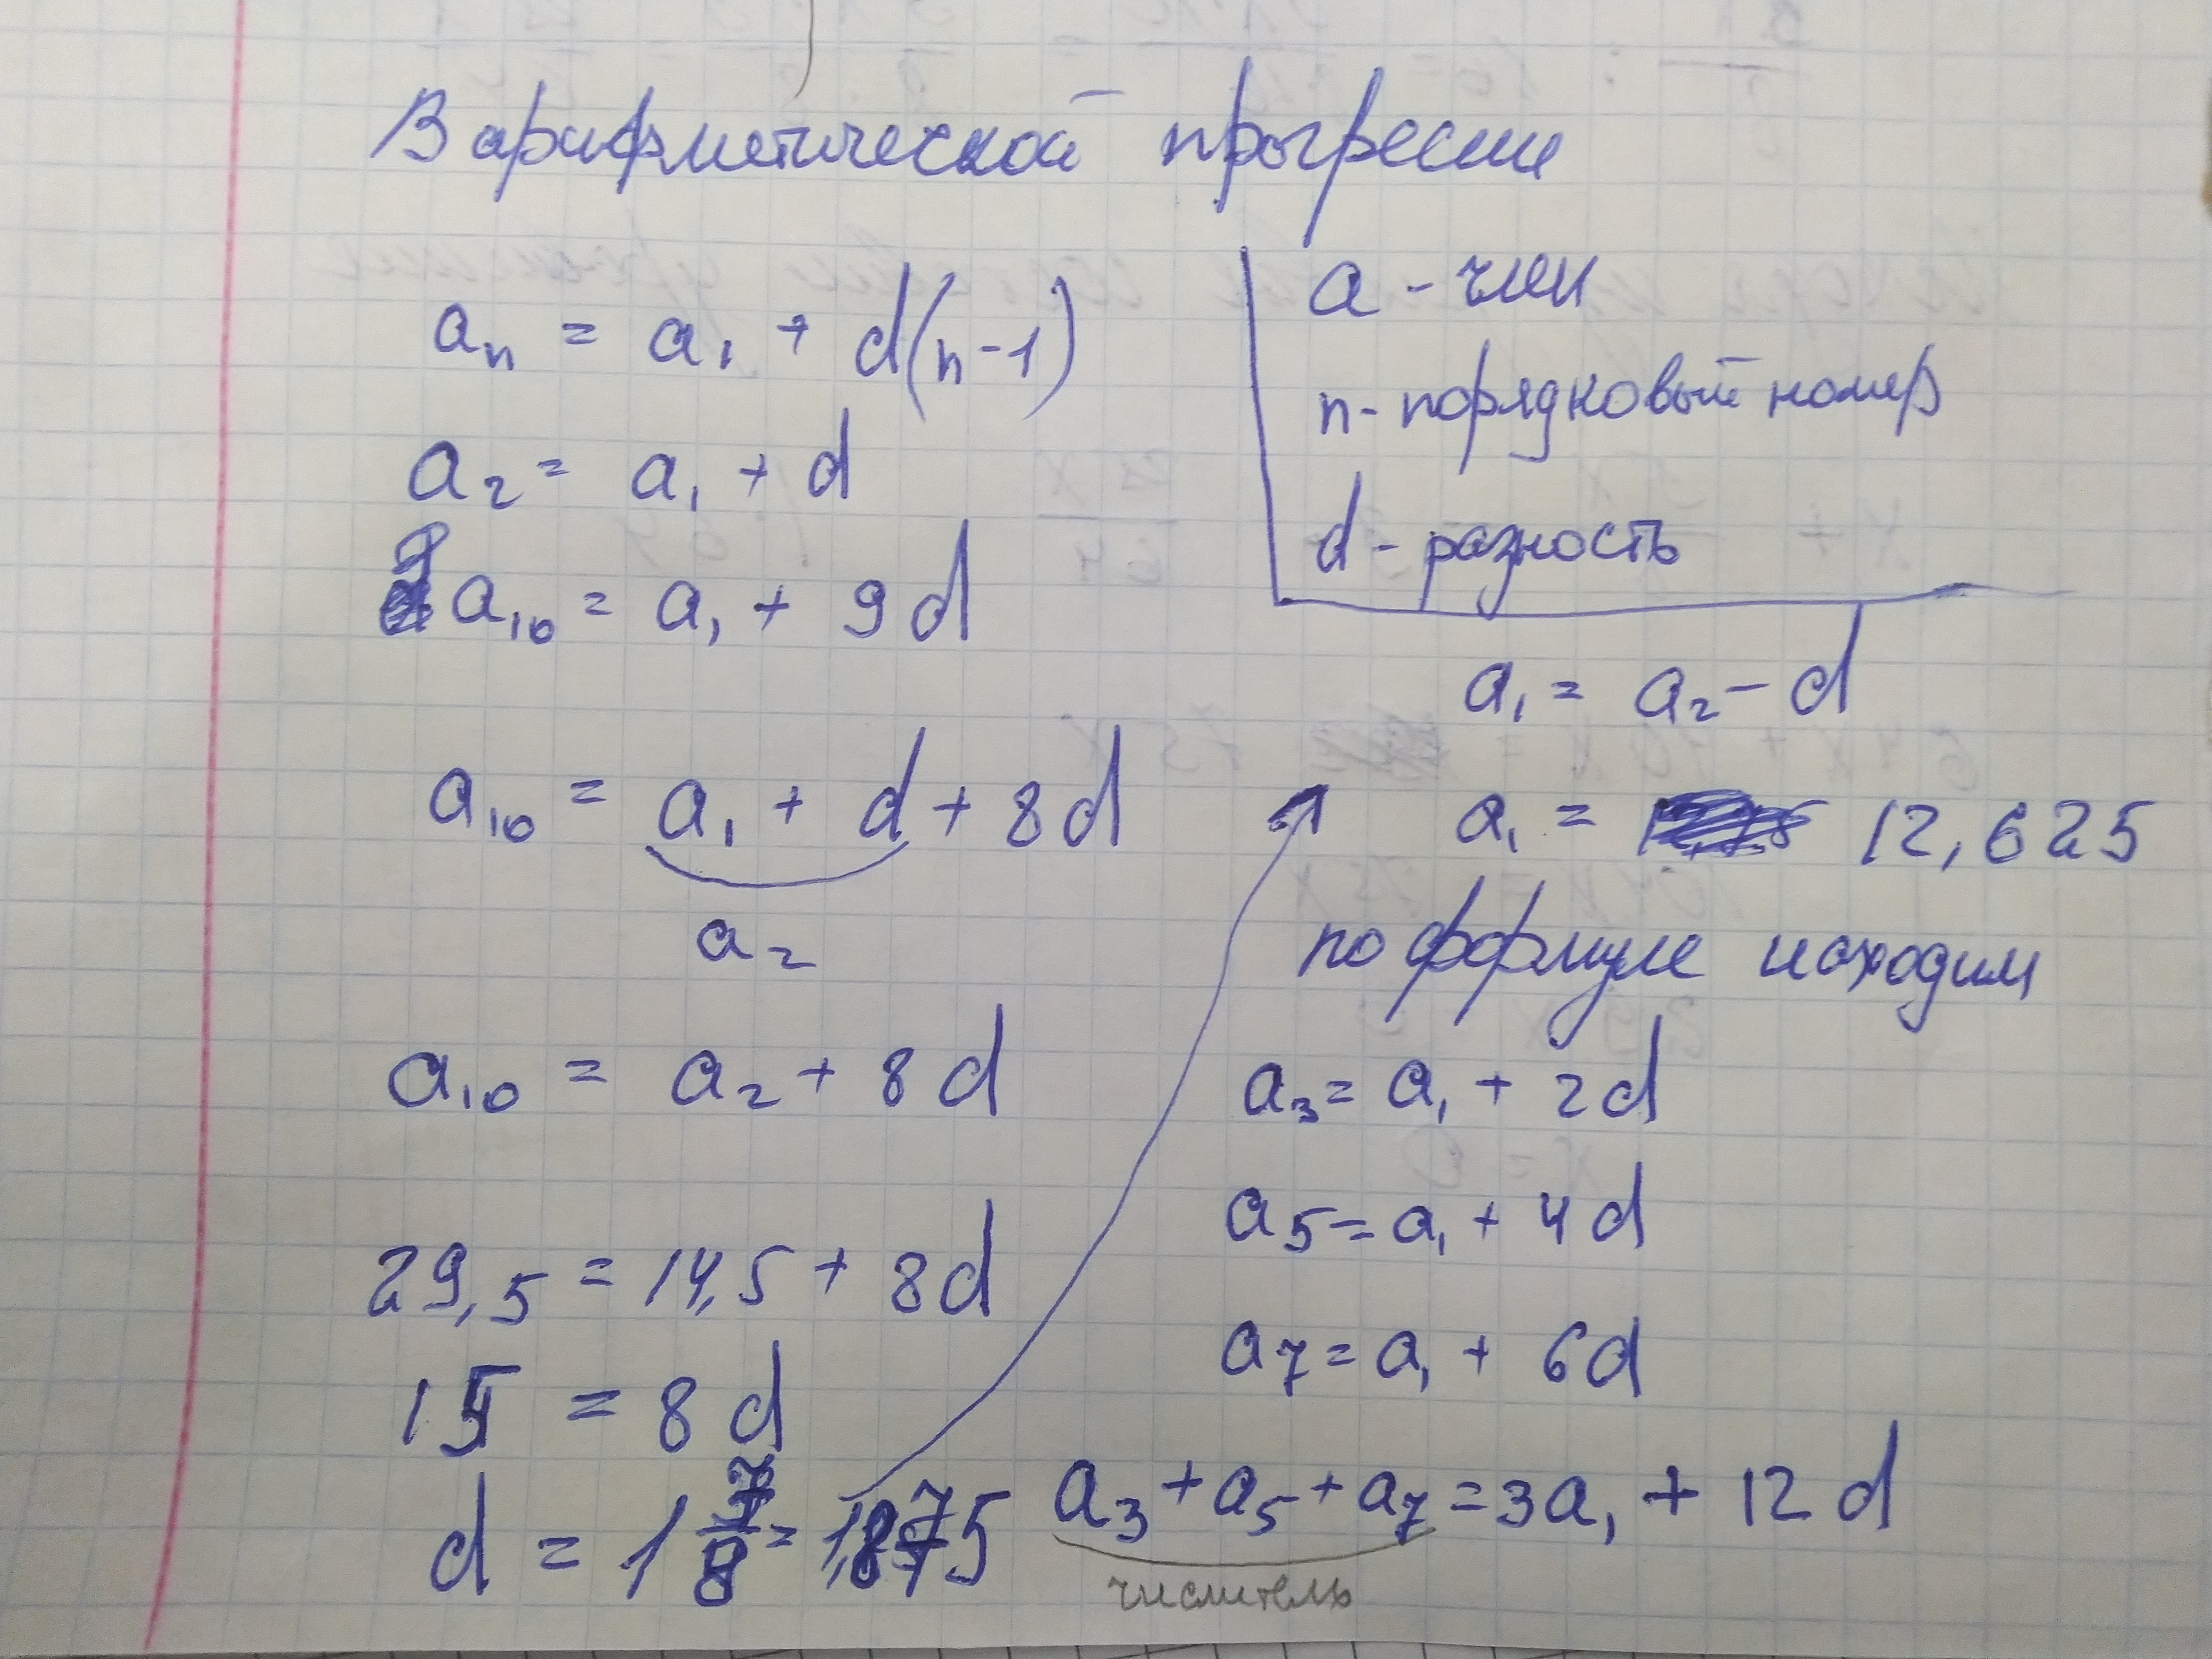 В арифметической прогресии
aₙ = a₁ + d(n-1)
a₂ = a₁ + d
a₁₀ = a₁ + 9d
a₁₀ = a₁ + d + 8d
a₂
a₁₀ = a₂ + 8d
29,5 = 14,5 + 8d
15 = 8d
d = 1 7/8 = 1,875
a - член
n - порядковый номер
d - разность
a₁ = a₂ - d
a₁ = 12,625
по формуле находим
a₃ = a₁ + 2d
a₅ = a₁ + 4d
a₇ = a₁ + 6d
a₃ + a₅ + a₇ = 3a₁ + 12d
числитель